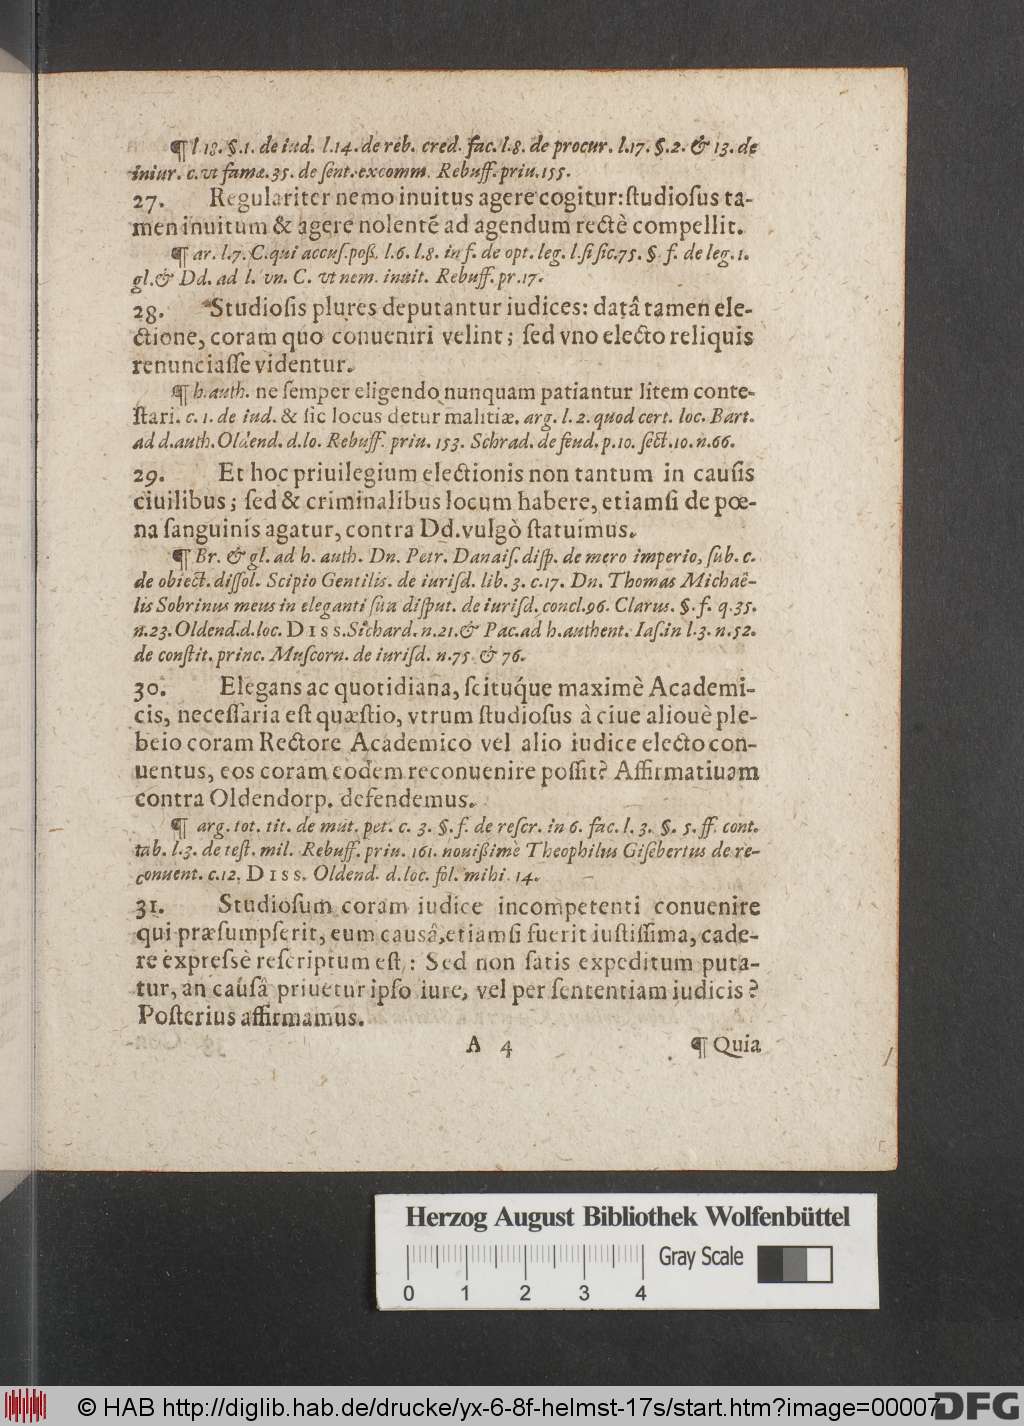 ¶ l 18. §. 1. de iud. l. 14. de reb. cred. fac. l. 8. de procur. l. 17. §. 2. & 13. de
iniur. c. vt famæ. 35. de ſent. excomm. Rebuff. priu. 155.
27. Regulariter nemo inuitus agere cogitur: ſtudioſus ta-
men inuitum & agere nolentē ad agendum rectè compellit.
¶ ar. l. 7. C. qui accuſ. poß. l. 6. l. 8. in f. de opt. leg. l. ſi ſic. 75. §. f. de leg. 1.
gl. & Dd. ad l. vn. C. vt nem. inuit. Rebuff. pr. 17.
28. Studioſis plures deputantur iudices: datâ tamen ele-
ctione, coram quo conueniri velint; ſed vno electo reliquis
renunciaſſe videntur.
¶ h. auth. ne ſemper eligendo nunquam patiantur litem conte-
ſtari. c. 1. de iud. & ſic locus detur malitiæ. arg. l. 2. quod cert. loc. Bart.
ad d. auth. Oldend. d. lo. Rebuff. priu. 153. Schrad. de feud. p. 10. ſect. 10. n. 66.
29. Et hoc priuilegium electionis non tantum in cauſis
ciuilibus; ſed & criminalibus locum habere, etiamſi de pœ-
na ſanguinis agatur, contra Dd. vulgò ſtatuimus.
¶ Br. & gl. ad h. auth. Dn. Petr. Danaiſ. diſp. de mero imperio, ſub. c.
de obiect. diſſol. Scipio Gentilis. de iuriſd. lib. 3. c. 17. Dn. Thomas Michaë-
lis Sobrinus meus in eleganti ſua diſput. de iuriſd. concl. 96. Clarus. §. f. q. 35.
n. 23. Oldend. d. loc. DISS. Sichard. n. 21. & Pac. ad h. authent. Iaſ. in l. 3. n. 52.
de conſtit. princ. Muſcorn. de iuriſd. n. 75 & 76.
30. Elegans ac quotidiana, ſcituq́ue maximè Academi-
cis, neceſſaria eſt quæſtio, vtrum ſtudioſus à ciue aliouè ple-
beio coram Rectore Academico vel alio iudice electo con-
uentus, eos coram eodem reconuenire poſſit? Affirmatiuam
contra Oldendorp. defendemus.
¶ arg. tot. tit. de mut. pet. c. 3. §. f. de reſcr. in 6. fac. l. 3. §. 5. ff. cont.
tab. l. 3. de teſt. mil. Rebuff. priu. 161. nouißimè Theophilus Giſebertus de re-
conuent. c. 12. DISS. Oldend. d. loc. fol. mihi 14.
31. Studioſum coram iudice incompetenti conuenire
qui præſumpſerit, eum cauſâ, etiamſi fuerit iuſtiſſima, cade-
re expreſsè reſcriptum eſt: Sed non ſatis expeditum puta-
tur, an cauſâ priuetur ipſo iure, vel per ſententiam iudicis?
Poſterius affirmamus.
A 4 ¶ Quia
Herzog August Bibliothek Wolfenbüttel
Gray Scale
0 1 2 3 4
© HAB http://diglib.hab.de/drucke/yx-6-8f-helmst-17s/start.htm?image=00007
DFG